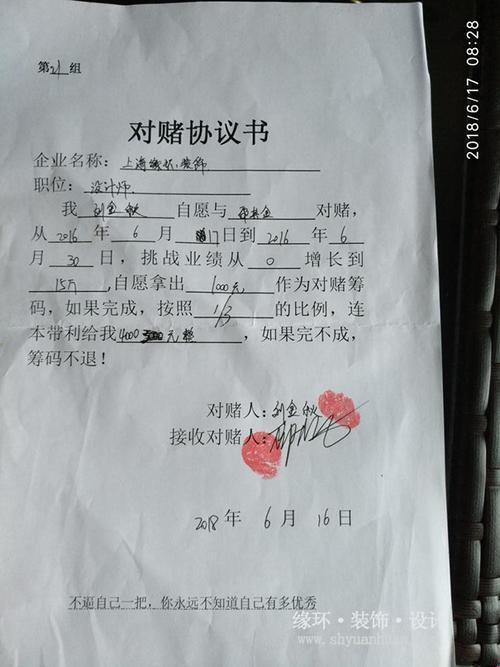 2018/6/17 08:28
第 21 组
对赌协议书
企业名称：上海缘环装饰
职位：设计师
我 刘金秋 自愿与 对赌，
从 2016 年 6 月 17日到 2016 年 6
月 30 日，挑战业绩从 0 增长到
15万 ,自愿拿出 1000元 作为对赌筹
码，如果完成，按照 1/3 的比例，连
本带利给我 4000 元整 ，如果完不成，
筹码不退！
对赌人：刘金秋
接收对赌人：
2018 年 6 月 16 日
不逼自己一把，你永远不知道自己有多优秀
缘环·装饰·设计
www.shyuanhuan.